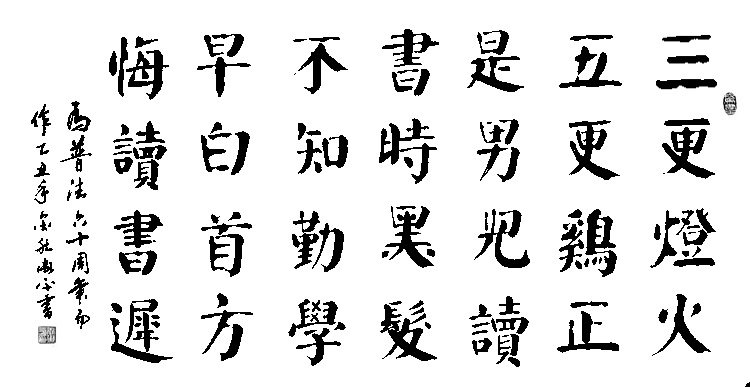 三更燈火
五更鷄正
是男兒讀
書時黑髮
不知勤學
早白首方
悔讀書遲
為普法六十周年而
作乙丑年金秋書